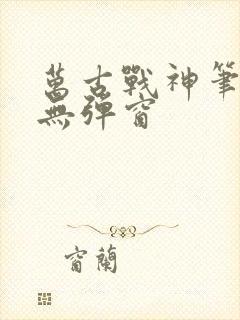 萬古戰神筆
無彈窗
窗蘭